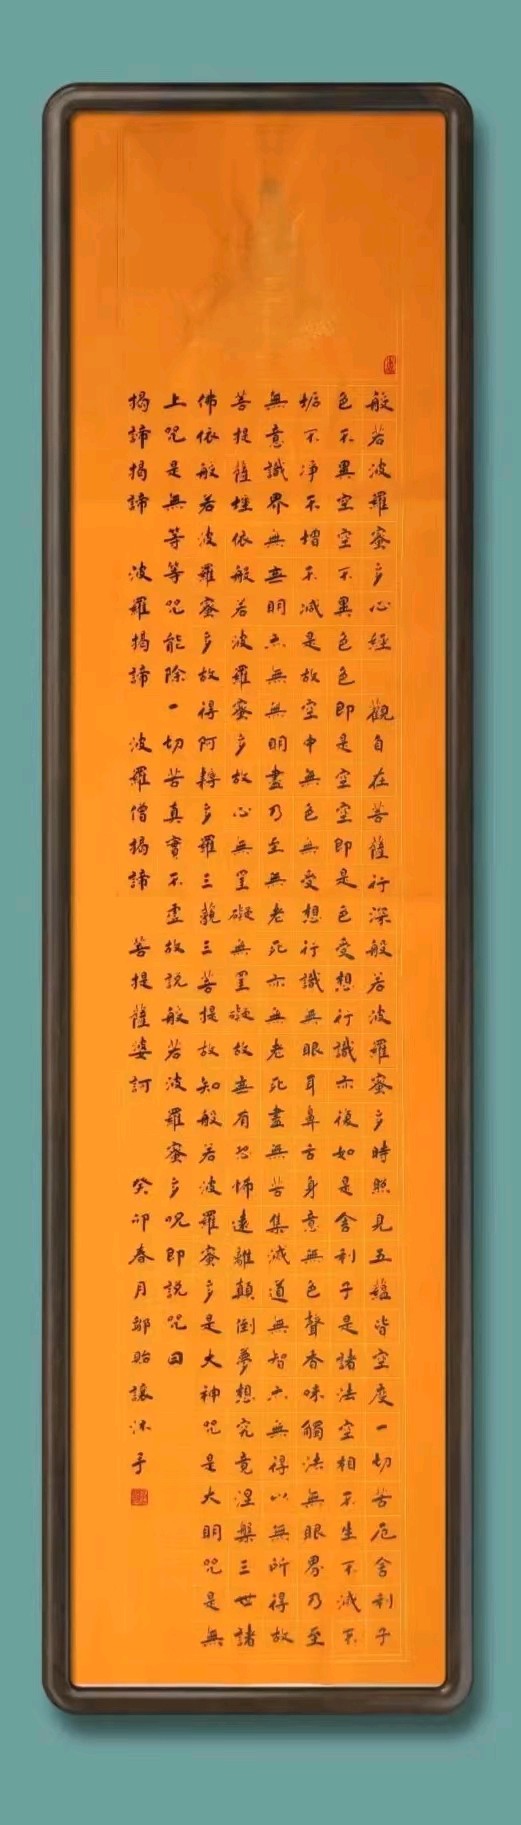 般若波羅蜜多心經 觀自在菩薩行深般若波羅蜜多時照見五蘊皆空度一切苦厄舍利子
色不異空空不異色色即是空空即是色受想行識亦復如是舍利子是諸法空相不生不滅不
垢不淨不增不減是故空中無色無受想行識無眼耳鼻舌身意無色聲香味觸法無眼界乃至
無意識界無無明亦無無明盡乃至無老死亦無老死盡無苦集滅道無智亦無得以無所得故
菩提薩埵依般若波羅蜜多故心無罣礙無罣礙故無有恐怖遠離顛倒夢想究竟涅槃三世諸
佛依般若波羅蜜多故得阿耨多羅三藐三菩提故知般若波羅蜜多是大神咒是大明咒是無
上咒是無等等咒能除一切苦真實不虛故說般若波羅蜜多咒即說咒曰
揭諦揭諦 波羅揭諦 波羅僧揭諦 菩提薩婆訶 癸卯春月貽讓沐手